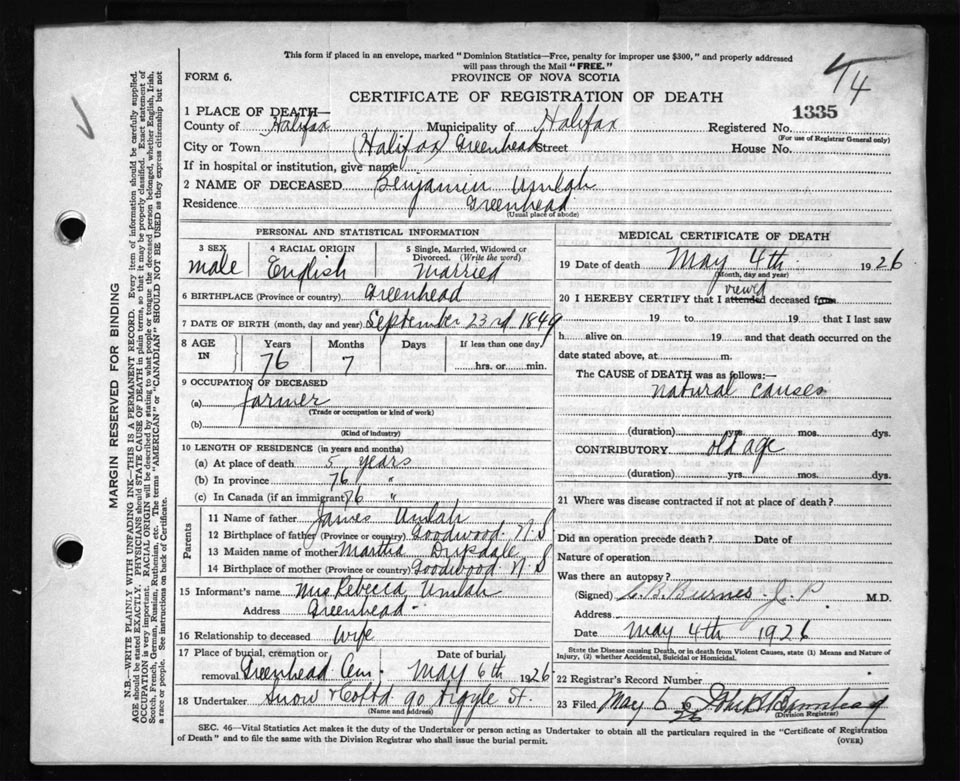 This form if placed in an envelope, marked "Dominion Statistics—Free, penalty for improper use $300," and properly addressed
will pass through the Mail "FREE."
FORM 6.
PROVINCE OF NOVA SCOTIA
CERTIFICATE OF REGISTRATION OF DEATH
1335
1 PLACE OF DEATH—
County of Halifax Municipality of Halifax Registered No.
(For use of Registrar General only)
City or Town (Halifax) Greenhead Street House No.
If in hospital or institution, give name
2 NAME OF DECEASED Benjamin Umlah
Residence Greenhead
(Usual place of abode)
PERSONAL AND STATISTICAL INFORMATION
3 SEX 4 RACIAL ORIGIN 5 Single, Married, Widowed or
Divorced. (Write the word)
male English Married
6 BIRTHPLACE (Province or country) Greenhead
7 DATE OF BIRTH (month, day and year) September 23rd 1849
8 AGE IN Years Months Days If less than one day
76 7 hrs. or min.
9 OCCUPATION OF DECEASED
(a) farmer
(Trade or occupation or kind of work)
(b)
(Kind of industry)
10 LENGTH OF RESIDENCE (in years and months)
(a) At place of death 5 years
(b) In province 76 "
(c) In Canada (if an immigrant) 76 "
Parents
11 Name of father James Umlah
12 Birthplace of father (Province or country) Goodwood N.S
13 Maiden name of mother Martha Drysdale
14 Birthplace of mother (Province or country) Goodwood N.S
15 Informant's name Mrs Rebecca Umlah
Address Greenhead
16 Relationship to deceased wife
17 Place of burial, cremation or removal Greenhead Cem. Date of burial, May 6th 1926
18 Undertaker Snow & Co Ltd 90 Argyle St.
(Name and address)
MEDICAL CERTIFICATE OF DEATH
19 Date of death May 4th 1926
(Month, day and year)
viewed
20 I HEREBY CERTIFY that I attended deceased from
19 to 19 that I last saw
h alive on 19 and that death occurred on the
date stated above, at m.
The CAUSE of DEATH was as follows:—
natural causes
(duration) yrs. mos. dys.
CONTRIBUTORY old age
(duration) yrs. mos. dys.
21 Where was disease contracted if not at place of death?
Did an operation precede death? Date of
Nature of operation
Was there an autopsy?
(Signed) C.B. Burnes J.P M.D.
Address
Date May 4th 1926
State the Disease causing Death, or in death from Violent Causes, state (1) Means and Nature of
Injury, (2) whether Accidental, Suicidal or Homicidal.
22 Registrar's Record Number
23 Filed May 6 1926
(Division Registrar)
SEC. 46—Vital Statistics Act makes it the duty of the Undertaker or person acting as Undertaker to obtain all the particulars required in the "Certificate of Registration
of Death" and to file the same with the Division Registrar who shall issue the burial permit. (OVER)
MARGIN RESERVED FOR BINDING
N.B.—WRITE PLAINLY WITH UNFADING INK—THIS IS A PERMANENT RECORD. Every item of information should be carefully supplied.
AGE should be stated EXACTLY. PHYSICIANS should STATE CAUSE OF DEATH in plain terms, so that it may be properly classified. Exact statement of
OCCUPATION is very important. RACIAL ORIGIN will be described by stating to what people or tongue the deceased person belonged, whether English, Irish,
Scotch, French, German, Russian, Ruthenian, etc. The terms "AMERICAN" or "CANADIAN" SHOULD NOT BE USED as they express citizenship but not
a race or people. See instructions on back of Certificate.